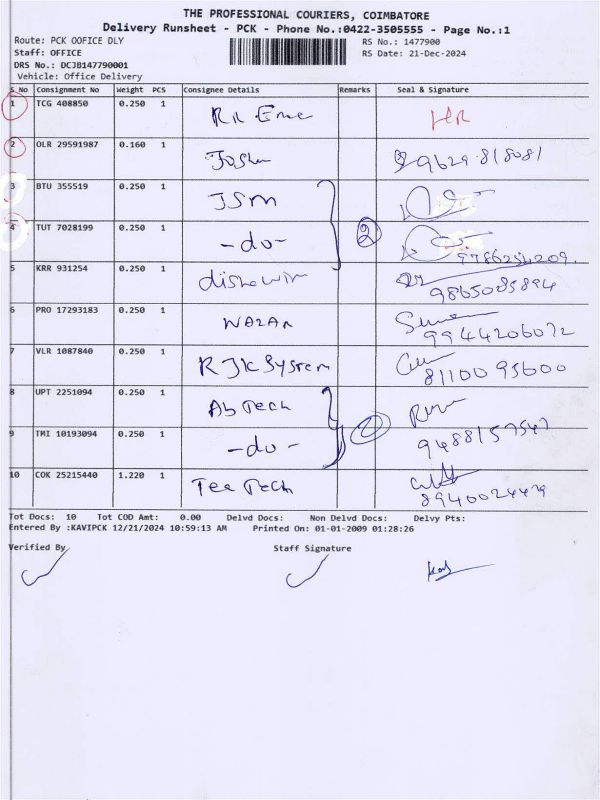 THE PROFESSIONAL COURIERS, COIMBATORE
Delivery Runsheet - PCK - Phone No.:0422-3505555 - Page No.:1
Route: PCK OOFICE DLY
RS No.: 1477900
Staff: OFFICE
RS Date: 21-Dec-2024
DRS No.: DCJB147790001
Vehicle: Office Delivery
S No Consignment No Weight PCS Consignee Details Remarks Seal & Signature
1 TCG 408850 0.250 1
2 OLR 29591987 0.160 1 9629 818081
3 BTU 355519 0.250 1 JSM
4 TUT 7028199 0.250 1 -do- 2
5 KRR 931254 0.250 1 9865085894
6 PRO 17293183 0.250 1 9944206072
7 VLR 1087840 0.250 1 RJK System 81100 95600
8 UPT 2251094 0.250 1 Ab Tech
9 TMI 10193094 0.250 1 -do-
10 COK 25215440 1.220 1 Tee Tech
Tot Docs: 10 Tot COD Amt: 0.00 Delvd Docs: Non Delvd Docs: Delvy Pts:
Entered By :KAVIPCK 12/21/2024 10:59:13 AM Printed On: 01-01-2009 01:28:26
Verified By Staff Signature